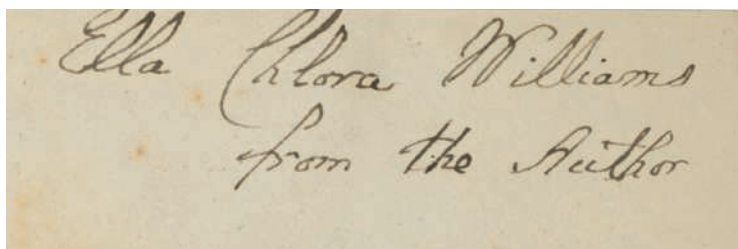 Ella Chlora Williams
from the Author